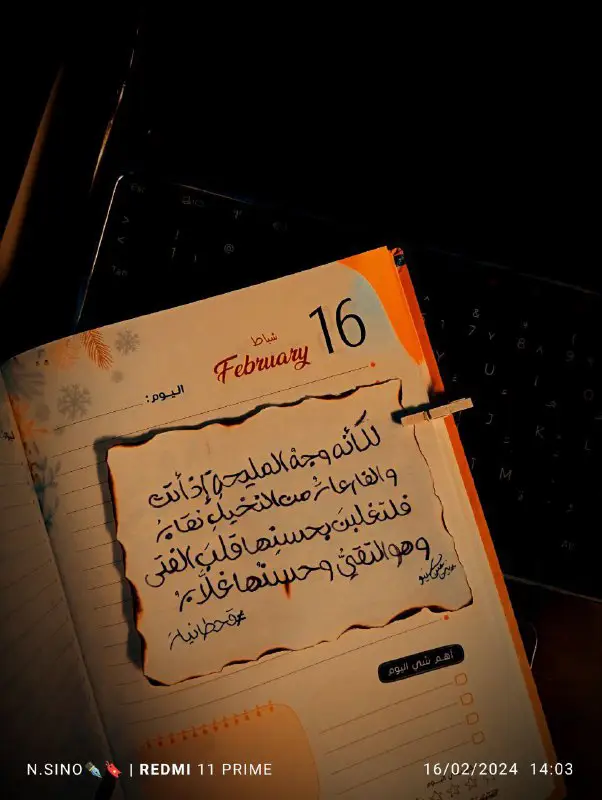 16
شباط
February
اليوم:
لكأنّه وجهُ المليحةِ إذ أتت
من النخيلِ نقابُ
فلتغلبنَ بحسنِها قلبَ الفتى
وهو التقيُّ وحسنُها غلّابُ
#قحطانية
أهم شي اليوم
N.SINO | REDMI 11 PRIME
16/02/2024 14:03